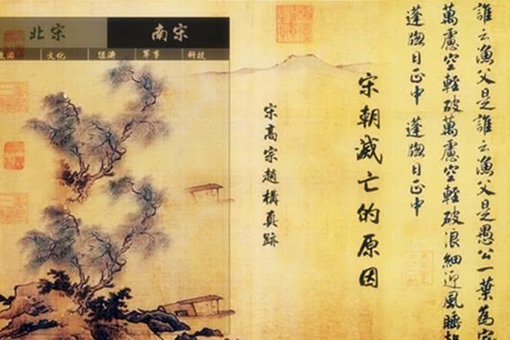 北宋 南宋
文化 經濟 軍事 科技
誰云漁父是誰云漁父是愚公一葉為家
萬慮空輕破萬慮空輕破浪細迎風睡起
蓬窗日正中 蓬窗日正中
宋朝滅亡的原因
宋高宗趙構真跡